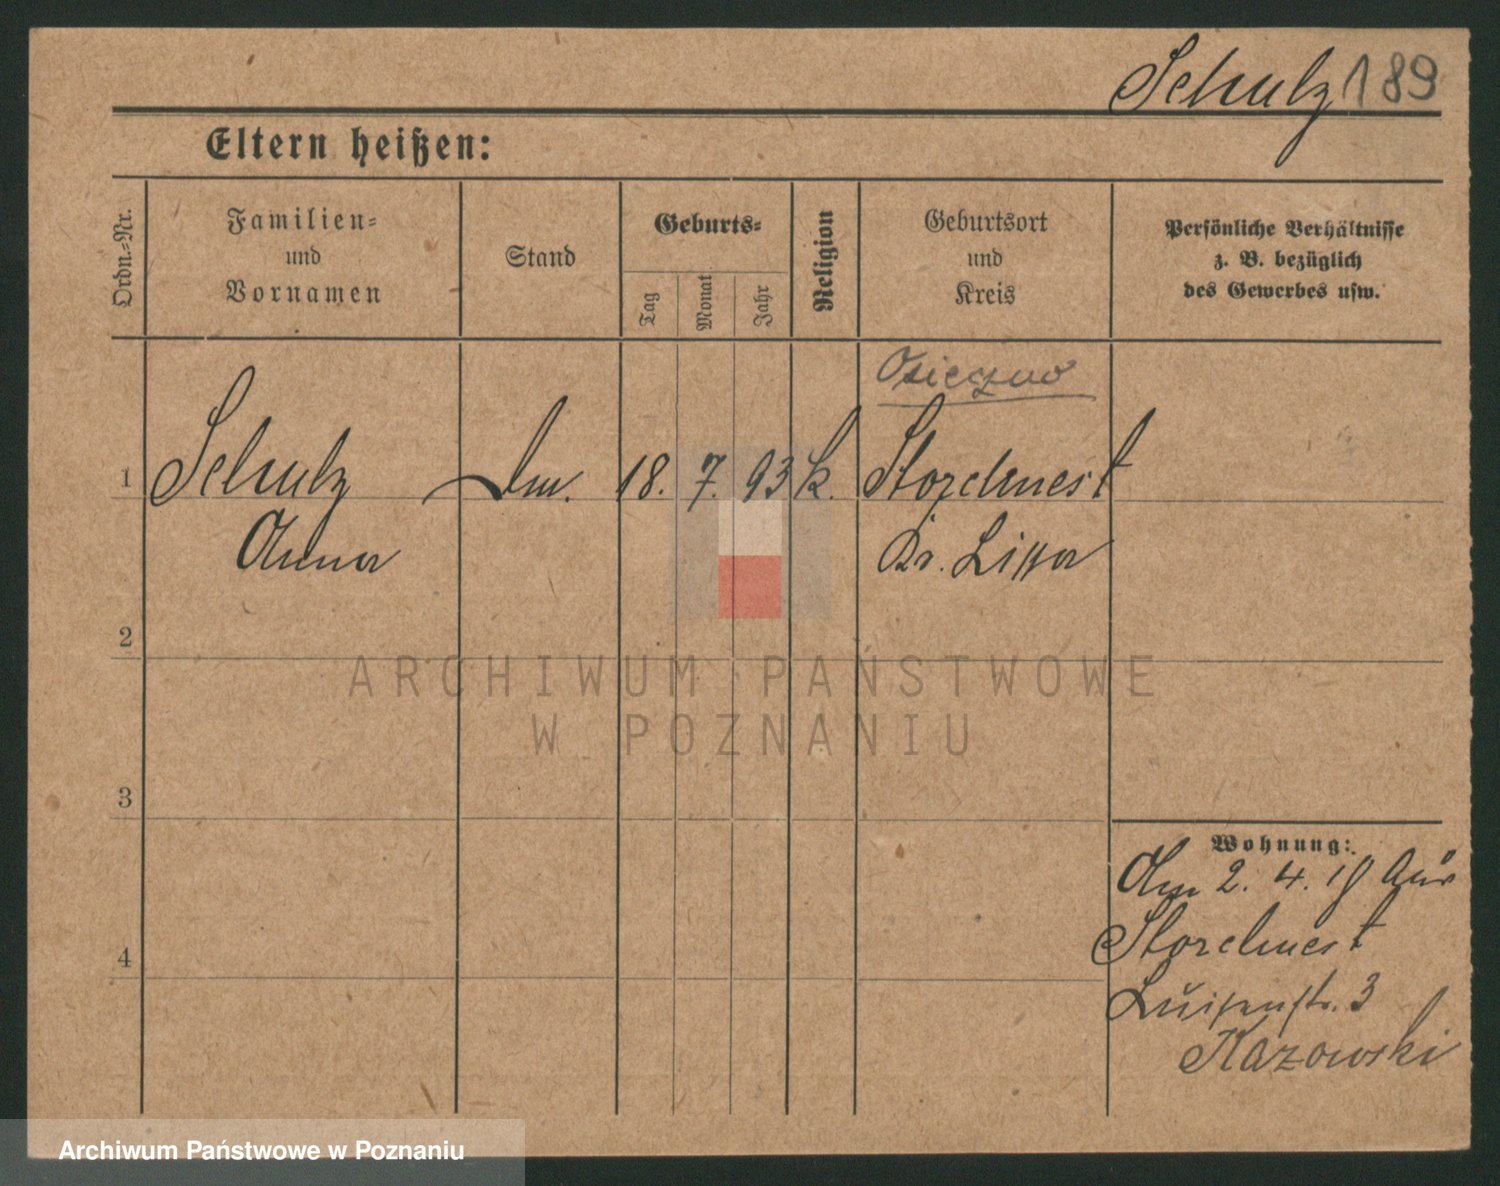 Schulz 189
Eltern heißen:
Ordn.-Nr.
Familien-
und
Vornamen
Stand
Geburts-
Tag
Monat
Jahr
Religion
Geburtsort
und
Kreis
Persönliche Verhältnisse
z. B. bezüglich
des Gewerbes usw.
Osieczno
1 Schulz 18. 7. 93 k. Storchnest
Anna Kr. Lissa
2
3
4
Wohnung:
Am 2. 4. 19 aus
Storchnest
Luisenstr. 3
Kazowski
ARCHIWUM PAŃSTWOWE
W POZNANIU
Archiwum Państwowe w Poznaniu